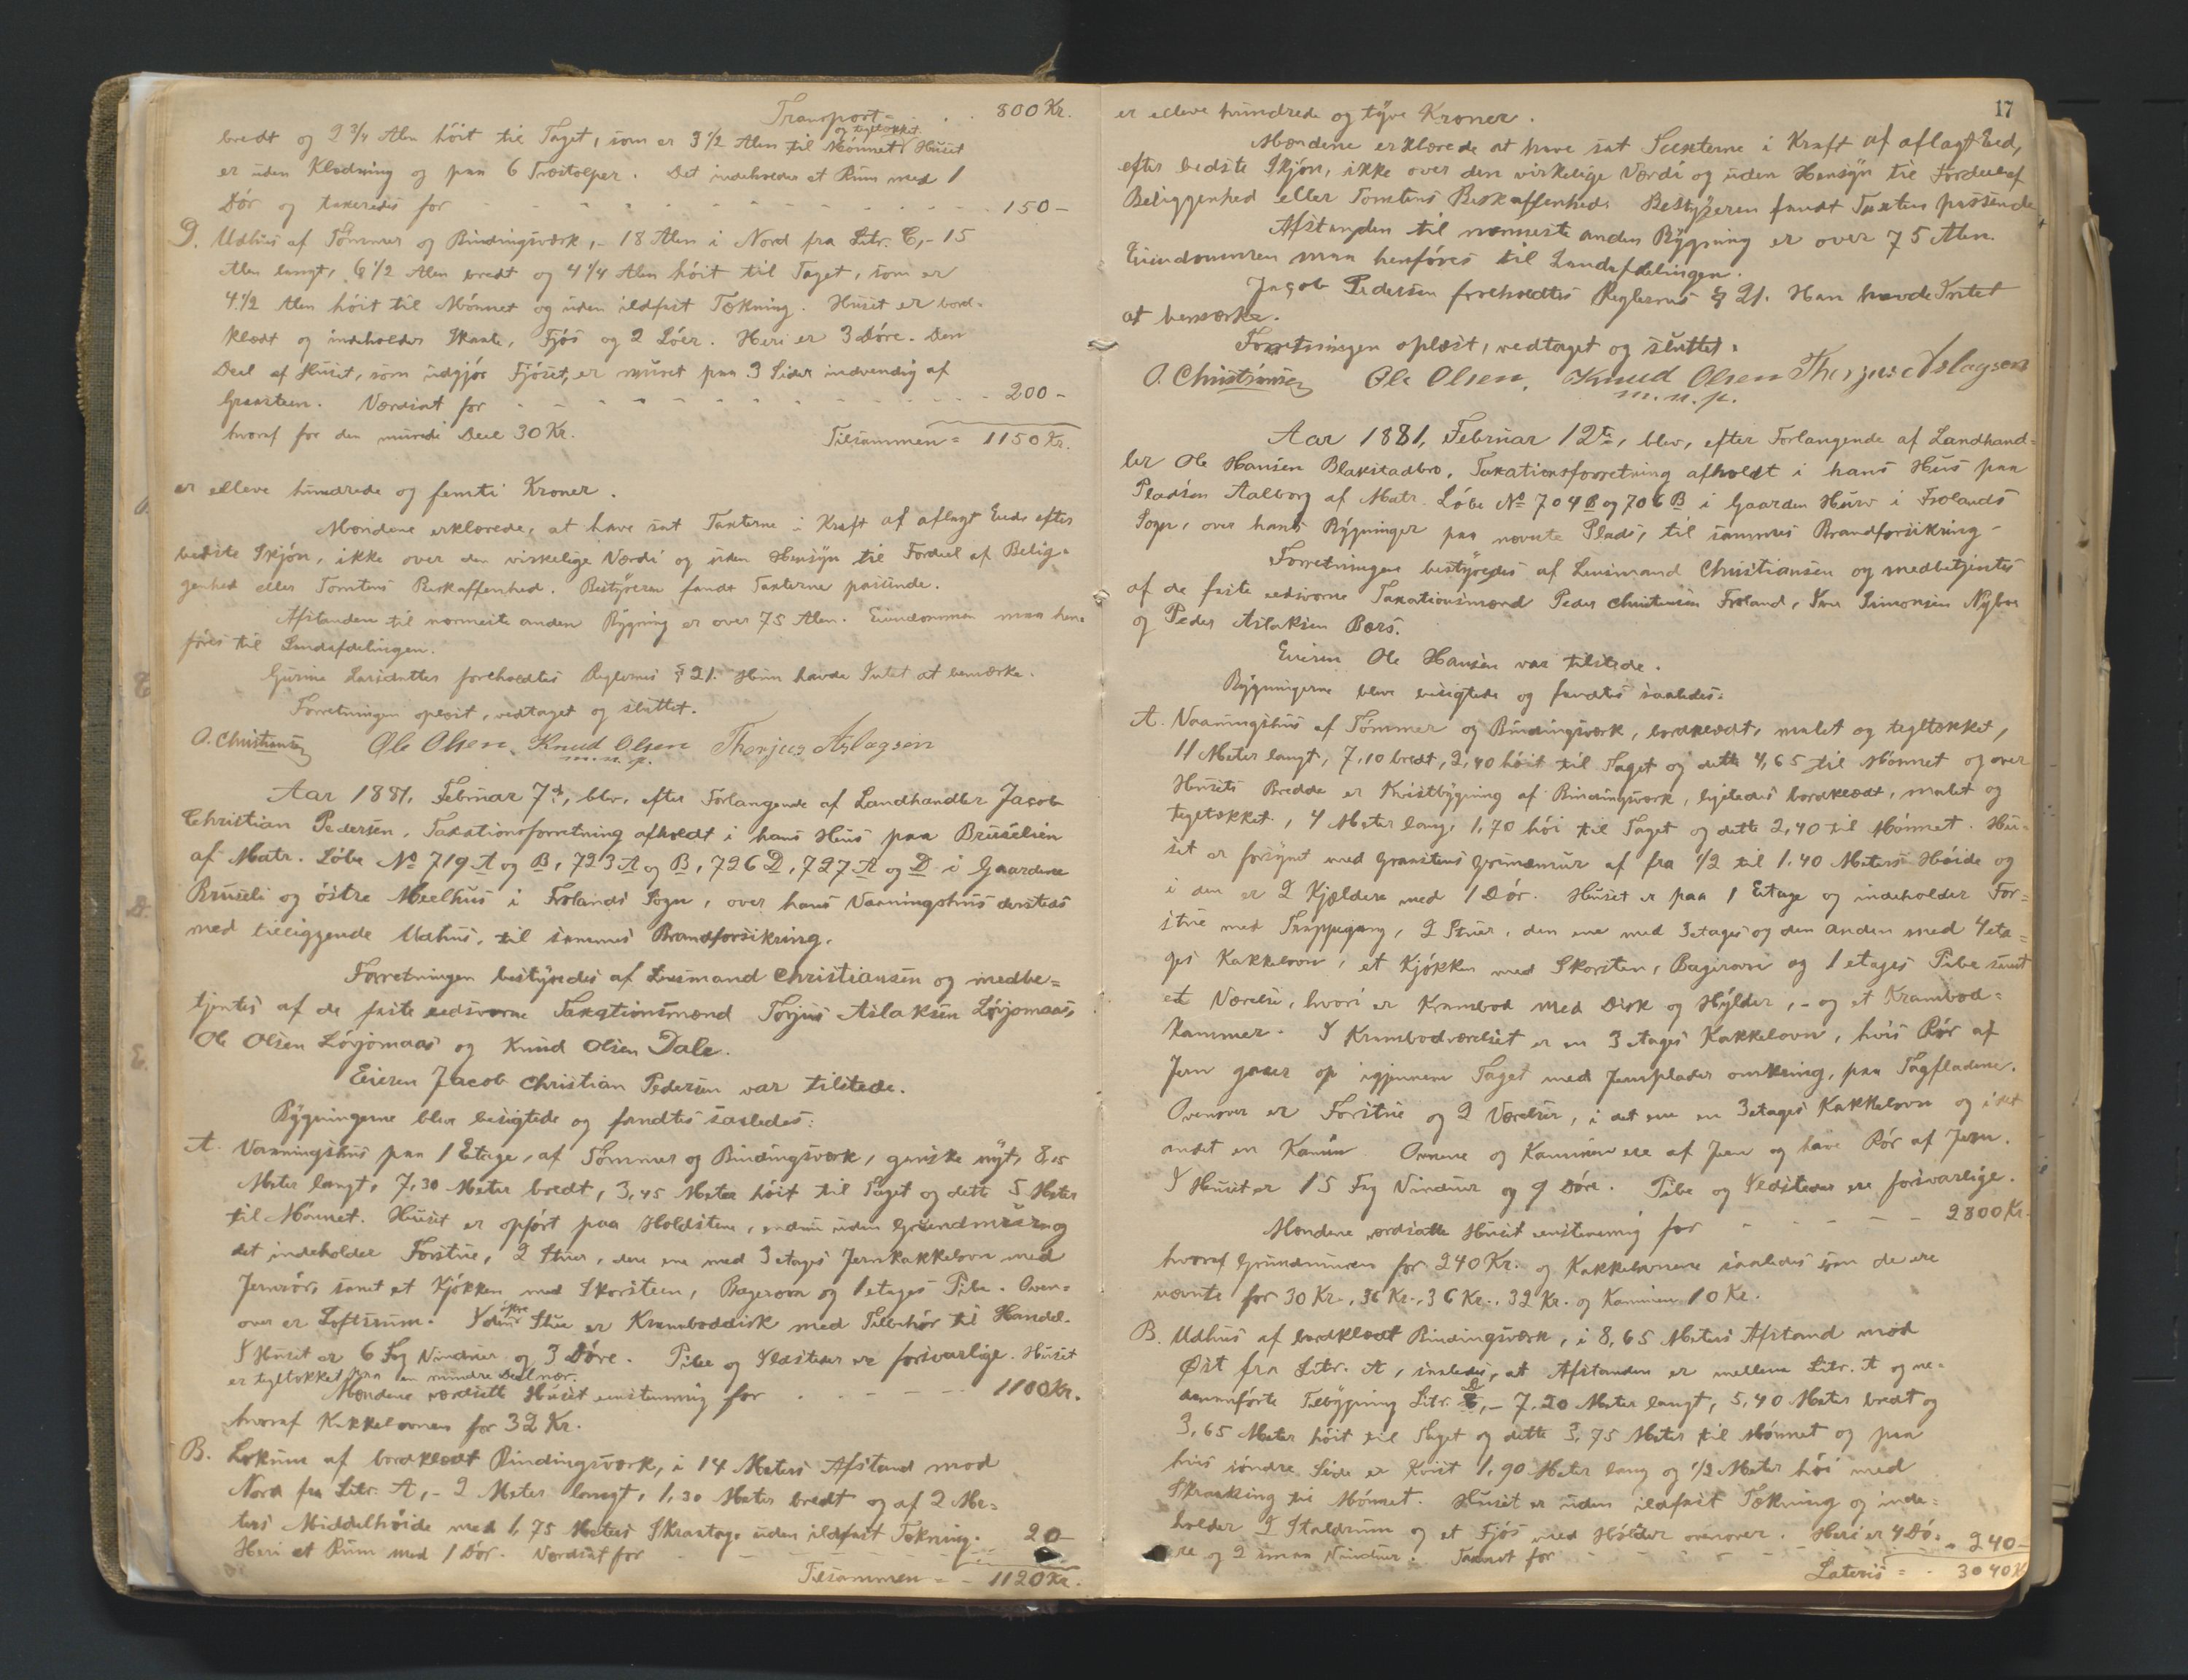 Transport = . . 800 Kr.
bredt og 2 3/4 Alen höit til Taget, som er 3 1/2 Alen til Mönnet og tegltækket. Huset
er uden Klædning og paa 6 Træstolper. Det indeholder et Rum med 1
Dör og taxeredes for - - - - - - - - - - 150 -
D. Udhus af Tömmer og Bindingsværk, - 18 Alen i Nord fra Litr. C, - 15
Alen langt, 6 1/2 Alen bredt og 4 1/4 Alen höit til Taget, som er
4 1/2 Alen höit til Mönnet og uden ildfast Tækning. Huset er bord-
klædt og indeholder Skaale, Fjös og 2 Löer. Heri er 3 Döre. Den
Deel af Huset, som udgjör Fjöset, er muret paa 3 Sider indvendig af
Graasteen. Værdsat for - - - - - - - - - - 200 -
hvoraf for den murede Deel 30 Kr. Tilsammen = 1150 Kr.
er elleve hundrede og femti Kroner.
Mændene erklærede, at have sat Taxterne i Kraft af aflagt Eed, efter
bedste Skjön, ikke over den virkelige Værdi og uden Hensyn til Fordeel af Belig-
genhed eller Tomtens Beskaffenhed. Bestyreren fandt Taxterne passende.
Afstanden til nærmeste anden Bygning er over 75 Alen. Eiendommen maa hen-
föres til Landafdelingen.
Gurine Larsdatter foreholdtes Reglernes § 21. Hun havde Intet at bemærke.
Forretningen oplæst, vedtaget og sluttet.
O. Christiansen Ole Olsen, Knud Olsen Thorjus Aslagsen
m. n. p.
Aar 1881, Februar 7de, blev, efter Forlangende af Landhandler Jacob
Christian Pedersen, Taxationsforretning afholdt i hans Hus paa Bruselien
af Matr. Löbe No 719 A og B, 723 A og B, 726 D, 727 A og D i Gaardene
Bruseli og östre Meelhus i Frolands Sogn, over hans Vaaningshus dersteds
med tilliggende Udhus, til sammes Brandforsikring.
Forretningen bestyredes af Lensmand Christiansen og medbe=
tjentes af de faste eedsvorne Taxationsmænd Torjus Aslaksen Lövjomaas,
Ole Olsen Lövjomaas og Knud Olsen Dale.
Eieren Jacob Christian Pedersen var tilstede.
Bygningerne blev besigtede og fandtes saaledes:
A. Vaaningshus paa 1 Etage, af Tömmer og Bindingsværk, ganske nyt, 8,15
Meter langt, 7,30 Meter bredt, 3,45 Meter höit til Taget og dette 5 Meter
til Mönnet. Huset er opfört paa Holdstene, endnu uden Grundmur og
det indeholder Forstue, 2 Stuer, den ene med 3 etages Jernkakkelovn med
Jernrör, samt et Kjökken med Skorsteen, Bagerovn og 1 etages Pibe. Oven-
over er Loftsrum. I den Stue er Kramboddisk med Tilbehör til Handel.
I Huset er 6 Fag Vinduer og 3 Döre. Pibe og Ildsteder ere forsvarlige. Huset
er tegltækket paa en mindre Deel nær.
Mændene værdsatte Huset eenstemmig for - - - - - 1100 Kr.
hvoraf Kakkelovnen for 32 Kr.
B. Lokum af bordklædt Bindingsværk, i 14 Meters Afstand mod
Nord fra Litr. A, - 2 Meter langt, 1,30 Meter bredt og af 2 Me=
ters Middelhöide med 1,75 Meters Skraatag uden ildfast Tækning.
Heri et Rum med 1 Dör. Værdsat for - - - - - 20 -
Tilsammen = - 1120 Kr.
17
er elleve hundrede og tyve Kroner.
Mændene erklærede at have sat Taxterne i Kraft af aflagt Eed,
efter bedste Skjön, ikke over den virkelige Værdi og uden Hensyn til Fordeel af
Beliggenhed eller Tomtens Beskaffenhed. Bestyreren fandt Taxten passende.
Afstanden til nærmeste anden Bygning er over 75 Alen.
Eiendommen maa henföres til Landafdelingen.
Jacob Pedersen foreholdtes Reglernes § 21. Han havde Intet
at bemærke.
Forretningen oplæst, vedtaget og sluttet.
O. Christiansen Ole Olsen, Knud Olsen Thorjus Aslagsen
m. n. p.
Aar 1881, Februar 12te, blev, efter Forlangende af Landhand-
ler Ole Hansen Blakstadbro, Taxationsforretning afholdt i hans Hus paa
Pladsen Aalborg af Matr. Löbe No 704 B og 706 B i Gaarden Hurv i Frolands
Sogn, over hans Bygninger paa nævnte Plads, til sammes Brandforsikring -
Forretningen bestyredes af Lensmand Christiansen og medbetjentes
af de faste eedsvorne Taxationsmænd Peder Christensen Froland, Simonsen Nybøe
og Peder Aslaksen Børs.
Eieren Ole Hansen var tilstede.
Bygningerne blev besigtede og fandtes saaledes:
A. Vaaningshus af Tömmer og Bindingsværk, bordklædt, malet og tegltækket,
11 Meter langt, 7,10 bredt, 2,40 höit til Taget og dette 4,65 til Mönnet og over
Husets Bredde er Kvistbygning af Bindingsværk, ligeledes bordklædt, malet og
tegltækket, 4 Meter lang, 1,70 höi til Taget og dette 2,40 til Mönnet. Hu-
set er forsynet med Graastens Grundmur af fra 1/2 til 1,40 Meters Höide og
i den er 2 Kjældere med 1 Dör. Huset er paa 1 Etage og indeholder For=
stue med Trappegang, 2 Stuer, den ene med 3 etages og den anden med 4 eta=
ges Kakkelovn, et Kjökken med Skorsten, Bagerovn og 1 etages Pibe samt
et Værelse, hvori er Krambod med Disk og Hylder, - og et Krambod=
kammer. I Krambodværelset er en 3 etages Kakkelovn, hvis Rör af
Jern gaaer op igjennem Taget med Jernplader omkring, paa Tagfladene.
Ovenover er Forstue og 2 Værelser, i det ene en 3 etages Kakkelovn og i det
andet en Kamin. Ovnene og Kaminen ere af Jern og have Rör af Jern.
I Huset er 15 Fag Vinduer og 9 Döre. Pibe og Ildsteder ere forsvarlige.
Mændene værdsatte Huset eenstemmig for - - - - - 2800 Kr.
hvoraf Grundmuren for 240 Kr. og Kakkelovnene saaledes som de ere
nævnte for 30 Kr., 36 Kr., 36 Kr., 32 Kr. og Kaminen 10 Kr.
B. Udhus af bordklædt Bindingsværk, i 8,65 Meters Afstand mod
Øst fra Litr. A, saaledes, at Afstanden er mellem Litr. A og ne-
denanförte Tilbygning Litr. D, - 7,20 Meter langt, 5,40 Meter bredt og
3,65 Meter höit til Taget og dette 3,75 Meter til Mönnet og paa
hvis söndre Side er Kvist 1,90 Meter lang og 1/2 Meter höi med
Skraaking til Mönnet. Huset er uden ildfast Tækning og inde=
holder 2 Staldrum og et Fjös med Hölder ovenover. Heri er 4 Dö-
re og 2 smaa Vinduer. Taxeret for - - - - - 240 -
Lateris = - 3040 Kr